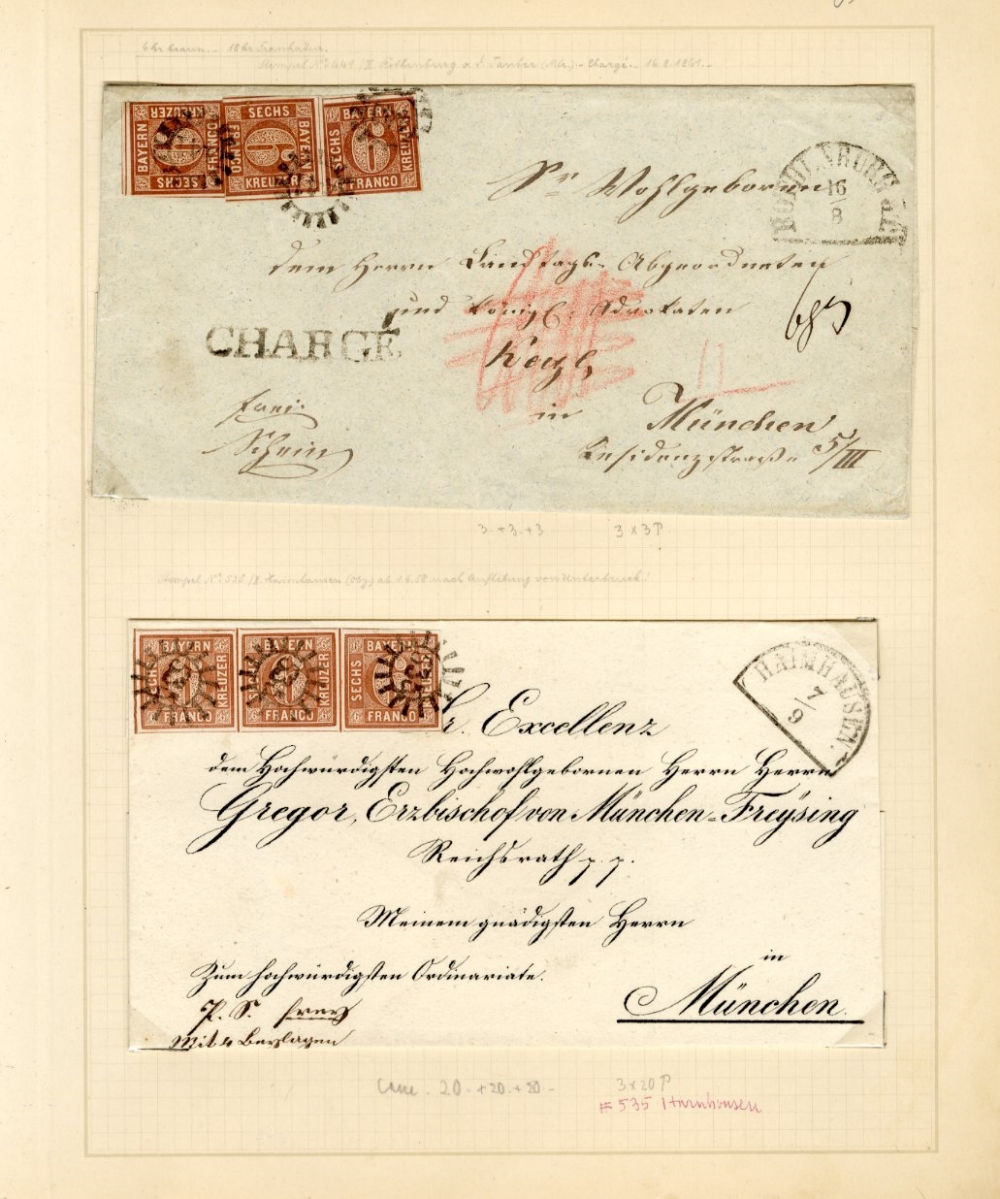 6 kr braun. - 18 kr Frankatur.
Stempel No 441 /II Rothenburg a. d. Tauber (Mfr.) - Chargé. - 16.8.1861. -
BAYERN SECHS KREUZER FRANCO 6
SECHS BAYERN KREUZER FRANCO 6
BAYERN SECHS KREUZER FRANCO 6
Sr Wohlgeboren
16
8
dem Herrn Landtags- Abgeordneten
und Königl. Advokaten
683
CHARGÉ
in München
frei
Schein
Residenzstraße 5/III
3 - + 3 - + 3 3 x 3 P
Stempel No 535 /II Haimhausen (Oby.) ab 1.6.58 nach Auflösung von Unterbruck!
BAYERN SECHS KREUZER FRANCO 6
BAYERN SECHS KREUZER FRANCO 6
BAYERN SECHS KREUZER FRANCO 6
HAIMHAUSEN.
7
9
Sr. Excellenz
dem Hochwürdigsten Hochwohlgebornen Herrn Herrn
Gregor, Erzbischof von München-Freÿsing
Reichsrath p. p.
Meinem gnädigsten Herrn
in
Zum hochwürdigsten Ordinariate.
München.
P. S. frey
mit 4 Beylagen
20 - + 20 - + 20 - 3 x 20 P
# 535